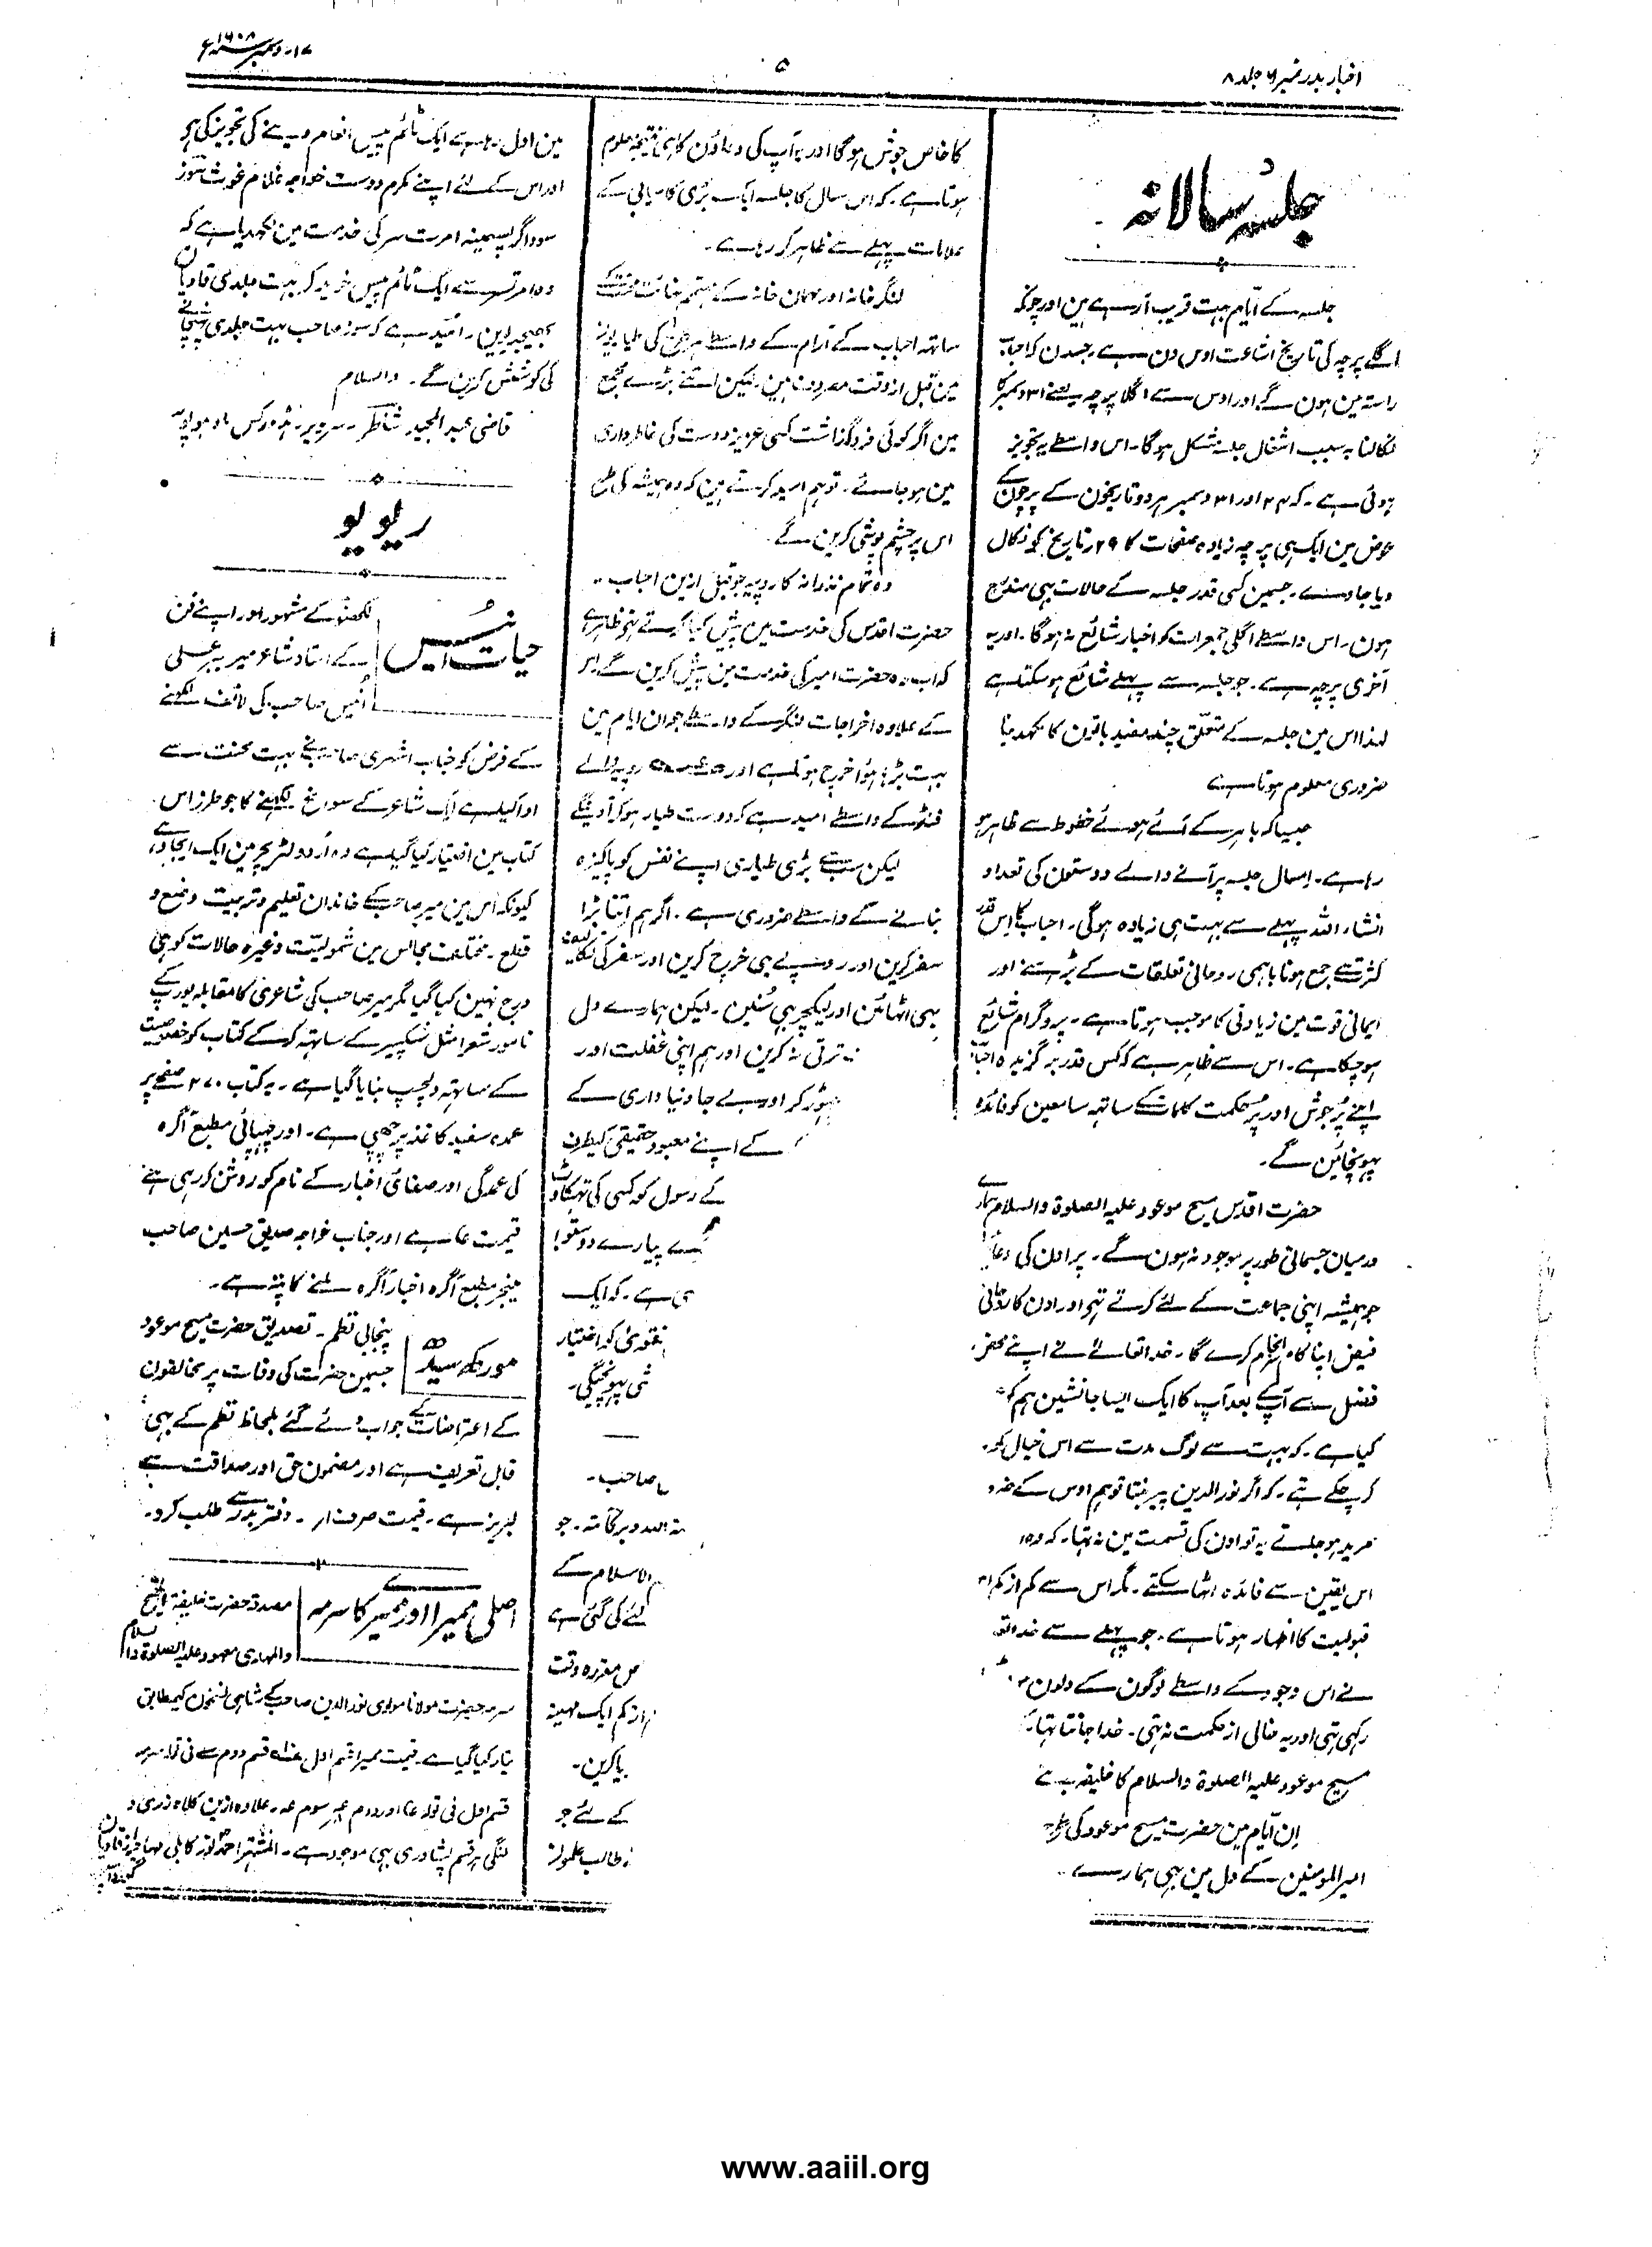 اخبار بدر نمبر ۶ جلد ۸
۵
۱۷۔ دسمبر ۱۹۰۸ء
جلسہ سالانہ
جلسہ کے ایّام بہت قریب آرہے ہین اور چونکہ
اگلے پرچہ کی تاریخ اشاعت اوس دن ہے۔ جسدن کہ احباب
راستہ مین ہون گے اور اوس سے اگلا پرچہ یعنے ۳۱ دسمبر کا
نکالنا بہ سبب اشغال جلسہ مشکل ہوگا۔ اس واسطے یہ تجویز
ہوئی ہے۔ کہ ۲۴ اور ۳۱ دسمبر ہر دو تاریخون کے پرچون کے
عوض مین ایک ہی پرچہ زیادہ صفحات کا ۲۹ تاریخ کو نکال
دیا جاوے۔ جسمین کسی قدر جلسہ کے حالات بہی مندرج
ہون۔ اس واسطے اگلی جمعرات کو اخبار شائع نہ ہوگا۔ اور یہ
آخری پرچہ ہے۔ جو جلسہ سے پہلے شائع ہوسکتا ہے
لہذا اس مین جلسہ کے متعلق چند مفید باتون کا لکھدینا
ضروری معلوم ہوتا ہے
جیسا کہ باہر کے آئے ہوئے خطوط سے ظاہر ہو
رہا ہے۔ امسال جلسہ پر آنے والے دوستون کی تعداد
انشاء اللہ پہلے سے بہت ہی زیادہ ہوگی۔ احباب کا اِس قدر
کثرت سے جمع ہونا باہمی روحانی تعلقات کے بڑہنے اور
ایمانی قوت مین زیادتی کا موجب ہوتا ہے۔ پروگرام شائع
ہوچکا ہے۔ اس سے ظاہر ہے کہ کس قدر برگزیدہ احباب
اپنے پُرجوش اور پُر حکمت کلمات کے ساتہہ سامعین کو فائدہ
پہونچائین گے۔
حضرت اقدس مسیح موعود علیہ الصلوۃ والسلام ہمارے
درمیان جسمانی طور پر موجود نہ ہون گے۔ پر اون کی دعائین
جو ہمیشہ اپنی جماعت کے لئے کرتے تہے اور اون کا روحانی
فیض اپنا کام انجام کرے گا۔ خدا تعالےٰ نے اپنے محض
فضل سے آپ کے بعد آپ کا ایک ایسا جانشین ہم کو
کیا ہے۔ کہ بہت سے لوگ مدت سے اس خیال کو
کرچکے تہے۔ کہ اگر نور الدین پیر بنتا تو ہم اوس کے ضرور
مرید ہوجاتے یہ تو اون کی قسمت مین نہ تہا۔ کہ وہ
اس یقین سے فائدہ اٹہا سکتے۔ مگر اس سے کم از کم
قبولیت کا اظہار ہوتا ہے۔ جو پہلے سے خدا تعالے
نے اس وجود کے واسطے لوگون کے دلون
رکہی تہی اور یہ خالی از حکمت نہ تہی۔ خدا جانتا تہا کہ
مسیح موعود علیہ الصلوۃ والسلام کا خلیفہ ہے
اِن ایّام مین حضرت مسیح موعود کی طرح
امیر المومنین کے دل مین بہی ہمارے
کا خاص جوش ہوگا اور یہ آپ کی دعاؤن کا ہی نتیجہ معلوم
ہوتا ہے۔ کہ اس سال کا جلسہ ایک بڑی کامیابی کے
علامات پہلے سے ظاہر کر رہا ہے۔
لنگر خانہ اور مہمان خانہ کے مہتمم نہائت محنت کے
ساتہہ احباب کے آرام کے واسطے ہر طرح کی طیاریون
مین قبل از وقت مصروف ہین۔ لیکن اتنے بڑے مجمع
مین اگر کوئی فروگذاشت کسی عزیز دوست کی خاطرداری
مین ہوجائے۔ تو ہم امید کرتے ہین کہ وہ ہمیشہ کی طرح
اس پر چشم پوشی کرین گے۔
وہ تمام نذرانہ کا روپیہ جو قبل ازین احباب
حضرت اقدس کی خدمت مین پیش کیا کرتے تہے ظاہر ہے
کہ اب وہ حضرت امیر کی خدمت مین پیش کرین گے اس
کے علاوہ اخراجات لنگر کے واسطے جو ان ایام مین
بہت بڑہا ہوا خرچ ہوتا ہے اور روپیہ والے
فنڈ کے واسطے امید ہے کہ دوست طیار ہوکر آوینگے
لیکن سب سے بڑی طیاری اپنے نفس کو پاکیزہ
بنانے کے واسطے ضروری ہے۔ اگر ہم اتنا بڑا
سفر کرین اور روپے بہی خرچ کرین اور سفر کی تکالیف
بہی اٹہائین اور لیکچر بہی سُنین۔ لیکن ہمارے دل
نہ ترقی نہ کرین اور ہم اپنی غفلت اور
چہوڑ کر اور بے جا دنیا داری کے
کے اپنے معبود حقیقی کیطرف
کے رسول کو کسی کی تہکاوٹ
پیارے دوستو!
ہی ہے۔ کہ ایک
تقویٰ کو اختیار
پہونچیگی۔
صاحب۔
اللہ وبرکاتہ۔ جو
الاسلام کے
کی گئی ہے
مقررہ وقت
از کم ایک مہینہ
کرین۔
کے لئے جو
طالب علمون
مین اول رہے ایک ٹائم پیس انعام دینے کی تجویز کی ہے
اور اس کے لئے اپنے مکرم دوست خواجہ غلام غوث
سوداگر پشمینہ امرت سر کی خدمت مین لکھدیا ہے کہ
وہ امرتسر سے ایک ٹائم پیس خرید کر بہت جلدی قادیان
بہیجدیوین۔ امید ہے کہ صاحب بہت جلدی پہنچانے
کی کوشش کرین گے۔ والسلام
قاضی عبد المجید
ریویو
حیات انیس
لکھنؤ کے مشہور اور اپنے فن
کے استاد شاعر میر ببر علی
انیس صاحب کی لائف لکہنے
کے فرض کو جناب اشہری صاحب نے بہت محنت سے
ادا کیا ہے ایک شاعر کے سوانح لکہنے کا جو طرز اس
کتاب مین اختیار کیا گیا ہے وہ اُردو لٹریچر مین ایک ایجاد ہے
کیونکہ اس مین میر صاحب کے خاندان تعلیم و تربیت وضع و
قطع۔ مختلف مجالس مین شمولیّت وغیرہ حالات کو ہی
درج نہین کیا گیا مگر میر صاحب کی شاعری کا مقابلہ یورپ کے
نامور شعرا مثل شکسپیر کے ساتہہ کرکے کتاب کو خصوصیت
کے ساتہہ دلچسپ بنایا گیا ہے۔ یہ کتاب ۲۷۰ صفحے پر
عمدہ سفید کاغذ پر چھپی ہے۔ اور چہپائی مطبع آگرہ
کی عمدگی اور صفائی اخبار کے نام کو روشن کر رہی ہے
قیمت عہ ہے اور جناب خواجہ صدیق حسین صاحب
مینجر مطبع آگرہ اخبار آگرہ ملنے کا پتہ ہے۔
پنجابی نظم۔ تصدیق حضرت مسیح موعود
جسمین حضرت کی وفات پر مخالفون
کے اعتراضات کے جواب دئے گئے بلحاظ نظم کے بہی
قابل تعریف ہے اور مضمون حق اور صداقت سے
لبریز ہے۔ قیمت صرف ۱ر۔ دفتر بدر سے طلب کرو۔
اصلی ممیرا اور ممیرے کا سرمہ
مصدقہ حضرت خلیفۃ المسیح
والمہدی معہود علیہ الصلوۃ والسلام
سرمہ حضرت مولانا مولوی نور الدین صاحب کے شاہی نسخون کیمطابق
تیار کیا گیا ہے۔ قیمت ممیرا قسم اول قسم دوم فی تولہ سرمہ
قسم اول فی تولہ اور دوم سوم علاوہ ازین کلاہ زری و
لنگی ہر قسم پشاوری بہی موجود ہے۔ المشتہر احمد نور کابلی مہاجر از قادیان
www.aaiil.org